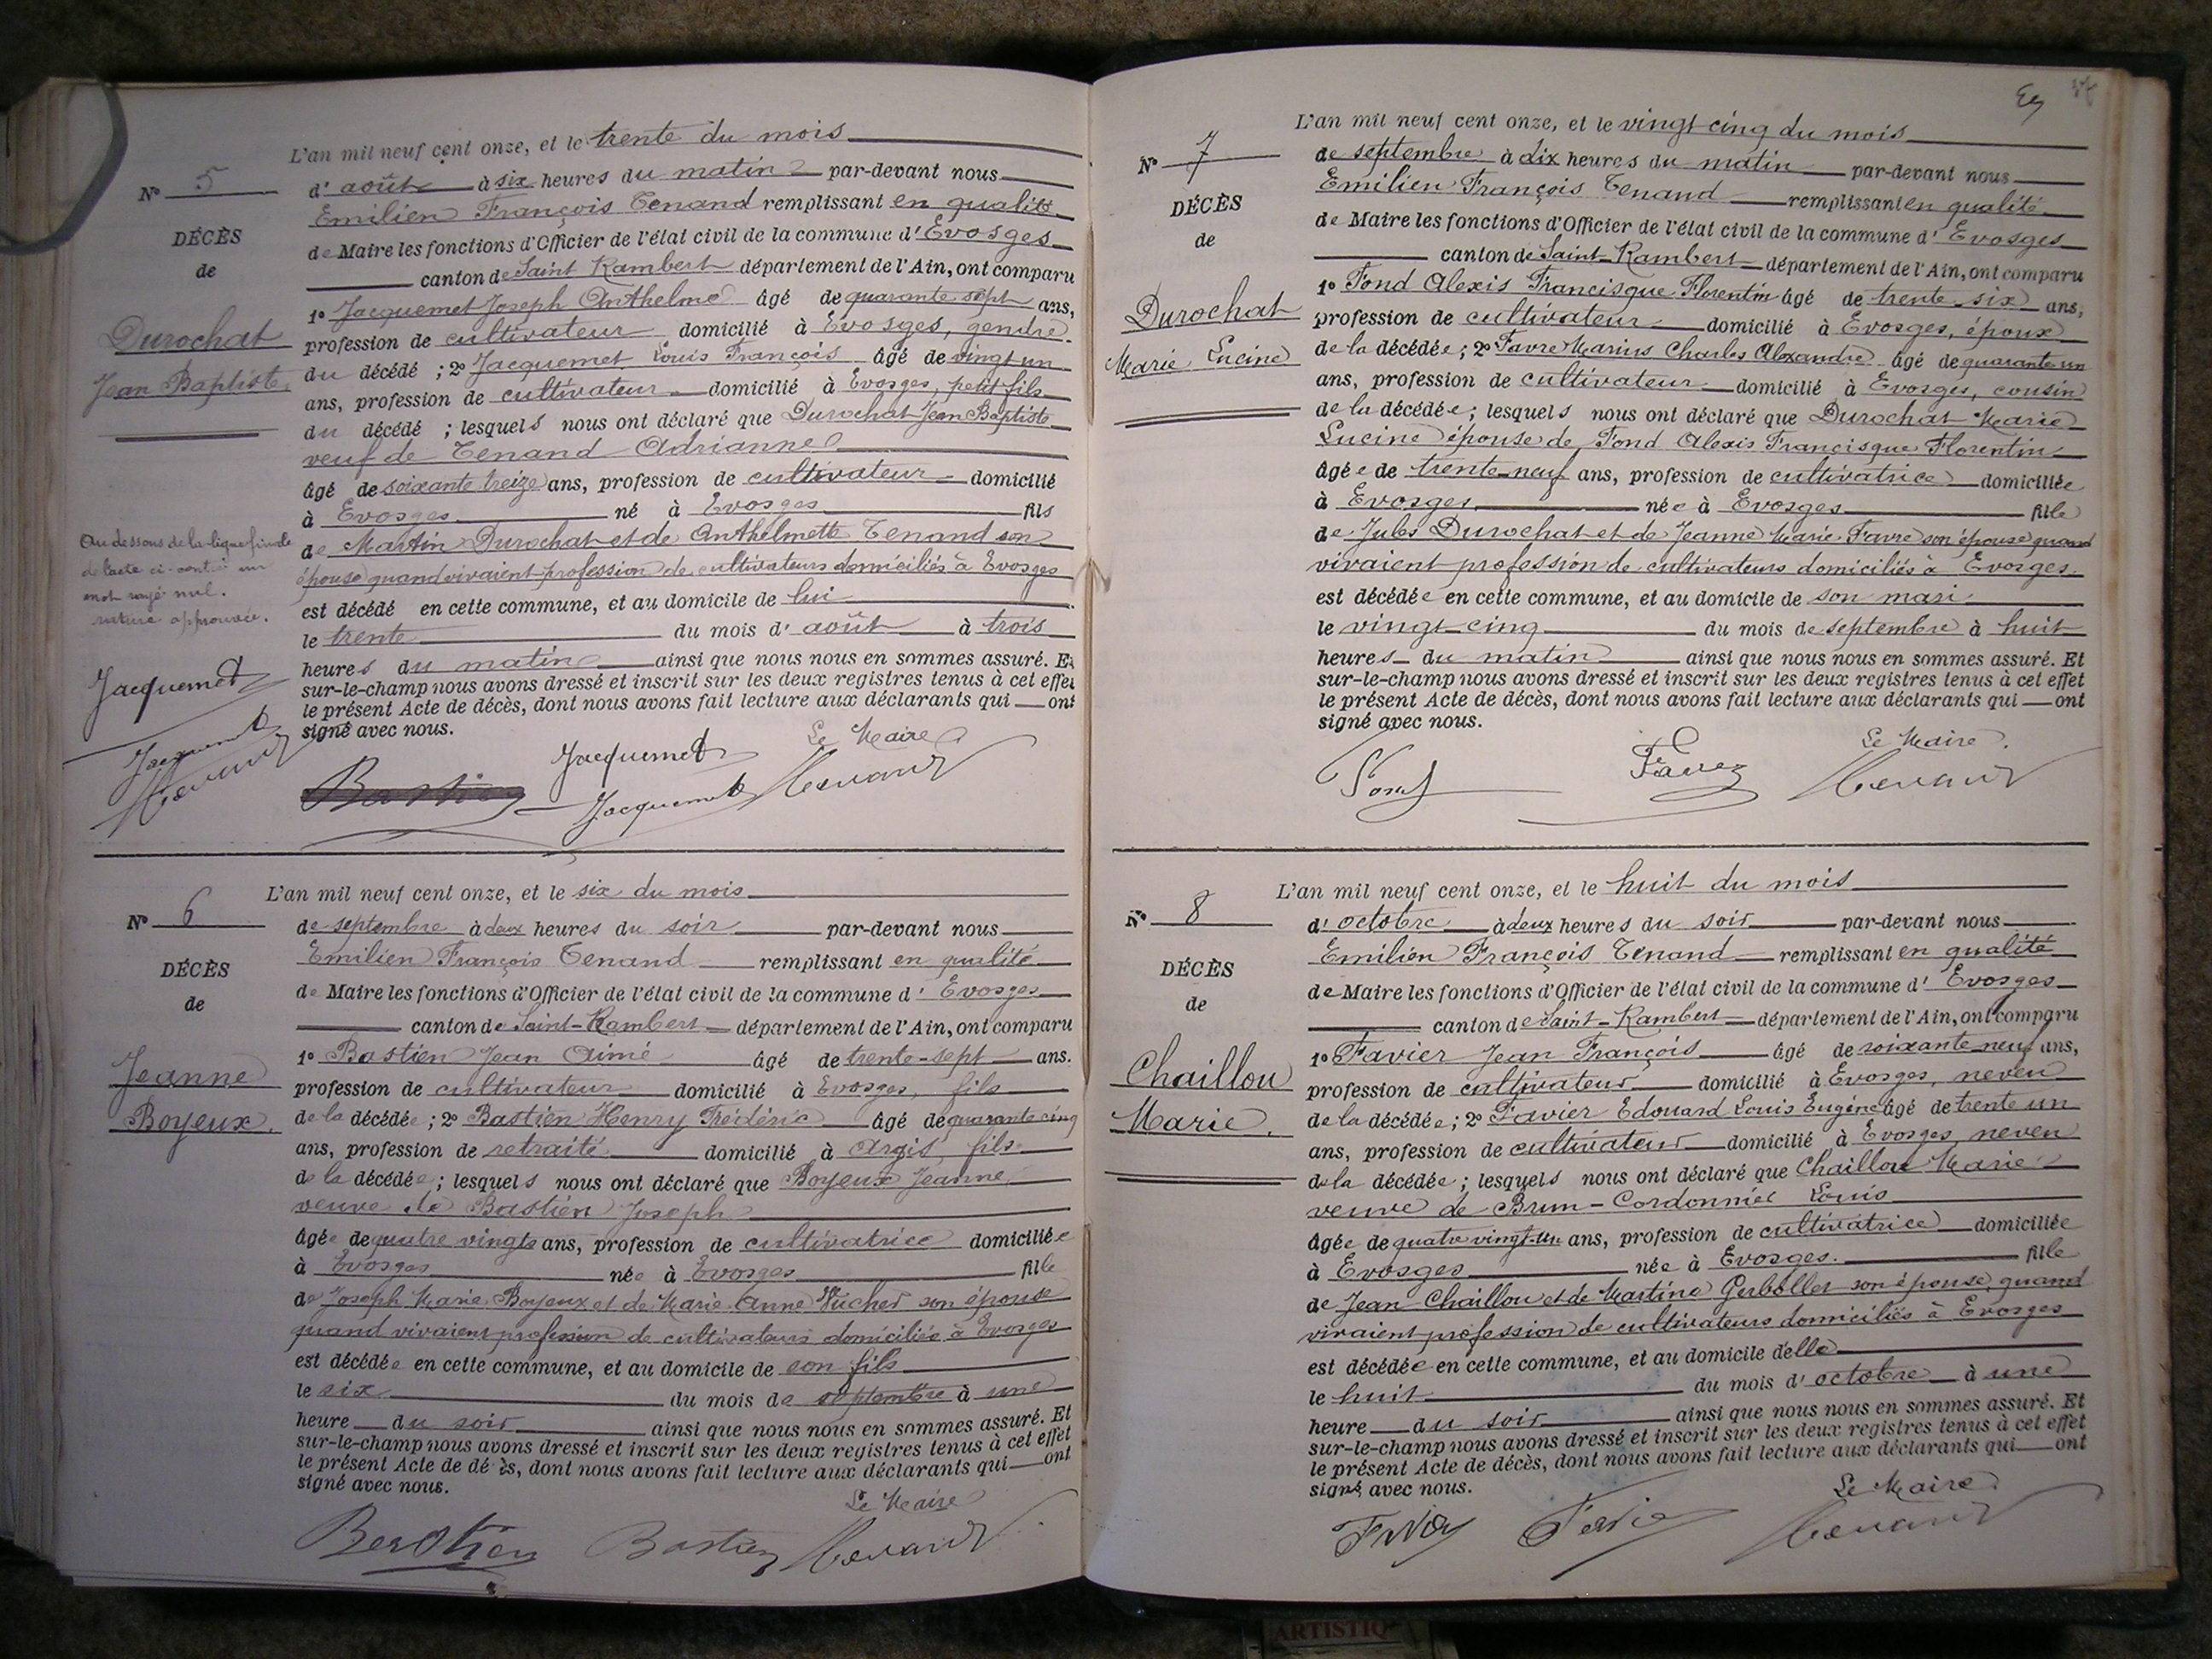 L'an mil neuf cent onze, et le trente du mois
N° 5
d'août à six heures du matin par-devant nous
Emilien François Tenand remplissant en qualité
DÉCÈS
de Maire les fonctions d'Officier de l'état civil de la commune d'Evosges
de
canton de Saint Rambert département de l'Ain, ont comparu
1° Jacquemet Joseph Anthelme âgé de quarante sept ans,
Durochat
profession de cultivateur domicilié à Evosges, gendre
Jean Baptiste
du décédé ; 2° Jacquemet Louis François âgé de vingt un
ans, profession de cultivateur domicilié à Evosges, petit fils
du décédé ; lesquels nous ont déclaré que Durochat Jean Baptiste
veuf de Tenand Adrianne
âgé de soixante treize ans, profession de cultivateur domicilié
à Evosges né à Evosges fils
de Martin Durochat et de Anthelmette Tenand son
épouse quand vivaient profession de cultivateurs domiciliés à Evosges
est décédé en cette commune, et au domicile de lui
le trente du mois d'août à trois
heures du matin ainsi que nous nous en sommes assuré. Et
sur-le-champ nous avons dressé et inscrit sur les deux registres tenus à cet effet
le présent Acte de décès, dont nous avons fait lecture aux déclarants qui ont
signé avec nous.
Au dessous de la ligne finale
de l'acte ci-contre un
mot rayé nul.
rature approuvée.
Jacquemet
Jacquemet
Tenand
Le Maire
Bastien
Jacquemet
Jacquemet
Tenand
L'an mil neuf cent onze, et le six du mois
N° 6
de septembre à deux heures du soir par-devant nous
Emilien François Tenand remplissant en qualité
DÉCÈS
de Maire les fonctions d'Officier de l'état civil de la commune d'Evosges
de
canton de Saint-Rambert département de l'Ain, ont comparu
Jeanne
1° Bastien Jean Aimé âgé de trente-sept ans.
profession de cultivateur domicilié à Evosges, fils
Boyeux.
de la décédée ; 2° Bastien Henry Frédéric âgé de quarante cinq
ans, profession de retraité domicilié à Argis, fils
de la décédée ; lesquels nous ont déclaré que Boyeux Jeanne
veuve de Bastien Joseph
âgée de quatre vingts ans, profession de cultivatrice domiciliée
à Evosges née à Evosges fille
de Joseph Marie Boyeux et de Marie Anne son épouse
quand vivaient profession de cultivateurs domiciliés à Evosges
est décédée en cette commune, et au domicile de son fils
le six du mois de septembre à une
heure du soir ainsi que nous nous en sommes assuré. Et
sur-le-champ nous avons dressé et inscrit sur les deux registres tenus à cet effet
le présent Acte de dé ès, dont nous avons fait lecture aux déclarants qui ont
signé avec nous.
Le Maire
Bastien Bastien Tenand
L'an mil neuf cent onze, et le vingt cinq du mois
N° 7
de septembre à dix heures du matin par-devant nous
Emilien François Tenand remplissant en qualité
DÉCÈS
de Maire les fonctions d'Officier de l'état civil de la commune d'Evosges
de
canton de Saint-Rambert département de l'Ain, ont comparu
1° Fond Alexis Francisque Florentin âgé de trente-six ans,
Durochat
profession de cultivateur domicilié à Evosges, époux
Marie Lucine
de la décédée ; 2° Favre Marius Charles Alexandre âgé de quarante un
ans, profession de cultivateur domicilié à Evosges, cousin
de la décédée ; lesquels nous ont déclaré que Durochat Marie
Lucine épouse de Fond Alexis Francisque Florentin
âgée de trente-neuf ans, profession de cultivatrice domiciliée
à Evosges née à Evosges fille
de Jules Durochat et de Jeanne Marie Favre son épouse quand
vivaient profession de cultivateurs domiciliés à Evosges
est décédée en cette commune, et au domicile de son mari
le vingt-cinq du mois de septembre à huit
heures du matin ainsi que nous nous en sommes assuré. Et
sur-le-champ nous avons dressé et inscrit sur les deux registres tenus à cet effet
le présent Acte de décès, dont nous avons fait lecture aux déclarants qui ont
signé avec nous.
Le Maire.
Fond Favre Tenand
L'an mil neuf cent onze, et le huit du mois
N° 8
d'octobre à deux heures du soir par-devant nous
Emilien François Tenand remplissant en qualité
DÉCÈS
de Maire les fonctions d'Officier de l'état civil de la commune d'Evosges
de
canton de Saint-Rambert département de l'Ain, ont comparu
1° Favier Jean François âgé de soixante neuf ans,
Chaillou
profession de cultivateur domicilié à Evosges, neveu
Marie.
de la décédée ; 2° Favier Edouard Louis Eugène âgé de trente un
ans, profession de cultivateur domicilié à Evosges, neveu
de la décédée ; lesquels nous ont déclaré que Chaillou Marie
veuve de Brun-Cordonnier Louis
âgée de quatre vingt-un ans, profession de cultivatrice domiciliée
à Evosges née à Evosges. fille
de Jean Chaillou et de Martine Gerbollet son épouse, quand
vivaient profession de cultivateurs domiciliés à Evosges
est décédée en cette commune, et au domicile d'elle
le huit du mois d'octobre à une
heure du soir ainsi que nous nous en sommes assuré. Et
sur-le-champ nous avons dressé et inscrit sur les deux registres tenus à cet effet
le présent Acte de décès, dont nous avons fait lecture aux déclarants qui ont
signé avec nous.
Le Maire
Favier Tenand
ARTISTIQ